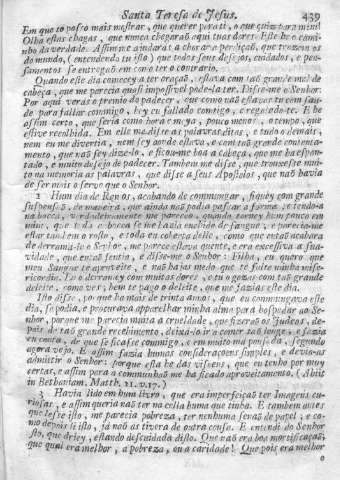 Santa Teresa de Jesus. 439
Em que to posso mais mostrar, que querer perati, o que quiz para mim!
Olha estas chagas, que nunca chegaraõ aqui tuas dores. Este he o cami-
nho da verdade. Assim me ajudarás a chorar a perdiçaõ, que trazem os
do mundo, (entendendo tu isto) que todos seus desejos, cuidados, e pen-
samentos se entregaõ em como ter o contrario.
Quando este dia comecey a ter oraçaõ, estava com taõ grande mal de
cabeça, que me parecia quasi impossivel pode-la ter. Disse-me o Senhor:
Por aqui verás o premio do padecer, que como naõ estavas tu em sau-
de para fallar commigo, hey eu fallado comtigo, e regalado-te. E he
assim certo, que seria como hora e meya, pouco menos, o tempo, que
estive recolhida. Em elle me disse as palavras ditas, e tudo o demais,
nem eu me divertia, nem sey aonde estava, e com taõ grande contenta-
mento, que naõ sey dize-lo, e ficou-me boa a cabeça, que me ha espan-
tado, e muito desejo de padecer. Tambem me disse, que trouxesse mui-
to na memoria as palavras, que disse a seus Apostolos, que naõ havia
de ser mais o servo que o Senhor.
2 Hum dia de Ramos, acabando de commungar, fiquey com grande
suspensaõ, de maneira, que ainda naõ podia passar a fórma, e tendo-a
na bocca, verdadeiramente me pareceo, quando torney hum pouco em
mim, que toda a bocca se me havia enchido de sangue, e parecia-me
estar tambem o rosto, e toda eu coberta delle, como que entaõ acabára
de derramá-lo o Senhor, me parece estava quente, e era excessiva a sua-
vidade, que entaõ sentia, e disse-me o Senhor: Filha, eu quero que
meu Sangue te aproveite, e naõ hajas medo que te falte minha mise-
ricordia. Eu o derramey com muitas dores, e tu o gozas com taõ grande
deleite, como ves, bem te pago o deleite, que me fazias este dia.
Isto disse, porque ha mais de trinta annos, que eu commungava este
dia, se podia, e procurava apparelhar minha alma para hospedar ao Se-
nhor, porque me parecia muita a crueldade, que fizeraõ os Judeos, de-
pois de taõ grande recebimento, deixa-lo ir a comer taõ longe, e fazia
eu conta, de que se ficasse commigo, e em muito má pousada, segundo
agora vejo. E assim fazia humas consideraçoens simples, e devia-as
admittir o Senhor: porque esta he das visoens, que eu tenho por muy
certas, e assim para a communhaõ me ha ficado aproveitamento. (Abiit
in Bethaniam. Matth. 21. v. 17.)
3 Havia lido em hum livro, que era imperfeiçaõ ter Imagens cu-
riosas, e assim queria naõ ter na cella huma que tinha. E tambem antes
que lesse isto, me parecia pobreza, ter nenhuma senaõ de papel; e co-
mo depois li isto, já naõ as tivera de outra cousa. E entendi do Senhor
isto, que direy, estando descuidada disso. Que naõ era boa mortificaçaõ;
que qual era melhor, a pobreza, ou a caridade? Que pois era melhor
o